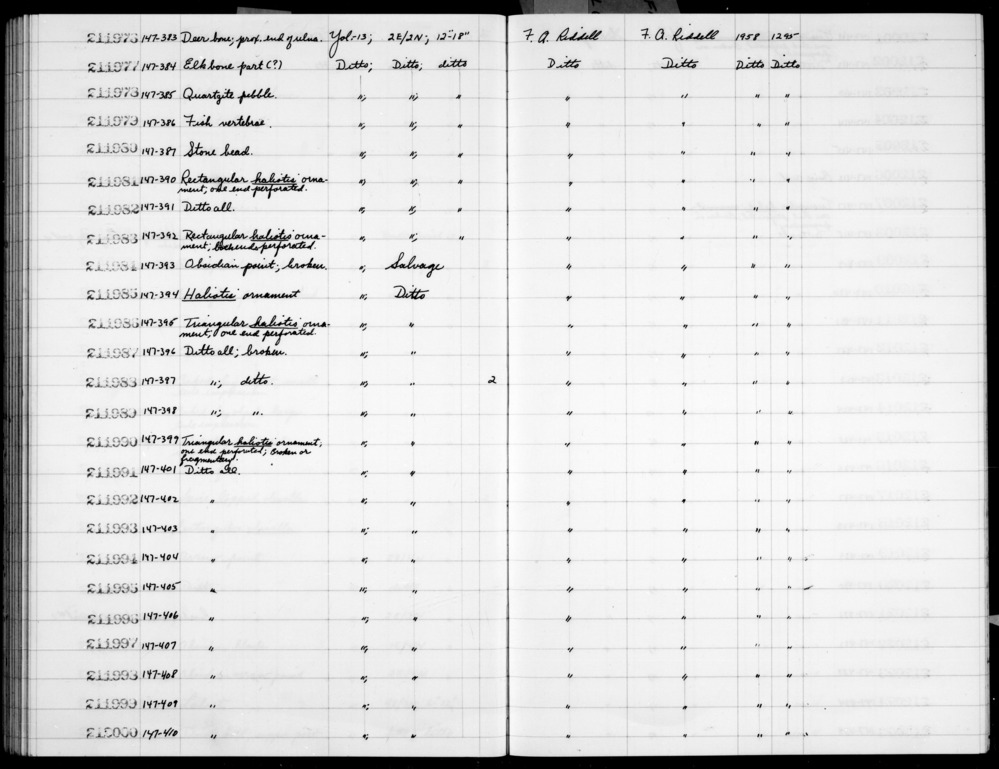 211976 147-383 Deer bone; prox. end of ulna. Yol-13; 2E/2N; 12"-18" F. A. Riddell F. A. Riddell 1958 1295
211977 147-384 Elk bone part (?) Ditto; Ditto; ditto Ditto Ditto Ditto Ditto
211978 147-385 Quartzite pebble. "; "; " " " " "
211979 147-386 Fish vertebrae. "; "; " " " " "
211980 147-387 Stone bead. "; "; " " " " "
211981 147-390 Rectangular haliotis orna-
ment, one end perforated. "; "; " " " " "
211982 147-391 Ditto all. "; "; " " " " "
211983 147-392 Rectangular haliotis orna-
ment; both ends perforated. "; "; " " " " "
211984 147-393 Obsidian point; broken. "; Salvage " " " "
211985 147-394 Haliotis ornament "; Ditto " " " "
211986 147-395 Triangular haliotis orna-
ment; one end perforated. "; " " " " "
211987 147-396 Ditto all; broken. "; " " " " "
211988 147-397 "; ditto. "; " 2 " " " "
211989 147-398 "; ". "; " " " " "
211990 147-399 Triangular haliotis ornament,
one end perforated; broken or
fragmentary. "; " " " " "
211991 147-401 Ditto all. "; " " " " "
211992 147-402 " "; " " " " "
211993 147-403 " "; " " " " "
211994 147-404 " "; " " " " "
211995 147-405 " "; " " " " "
211996 147-406 " "; " " " " "
211997 147-407 " "; " " " " "
211998 147-408 " "; " " " " "
211999 147-409 " "; " " " " "
212000 147-410 " "; " " " " "